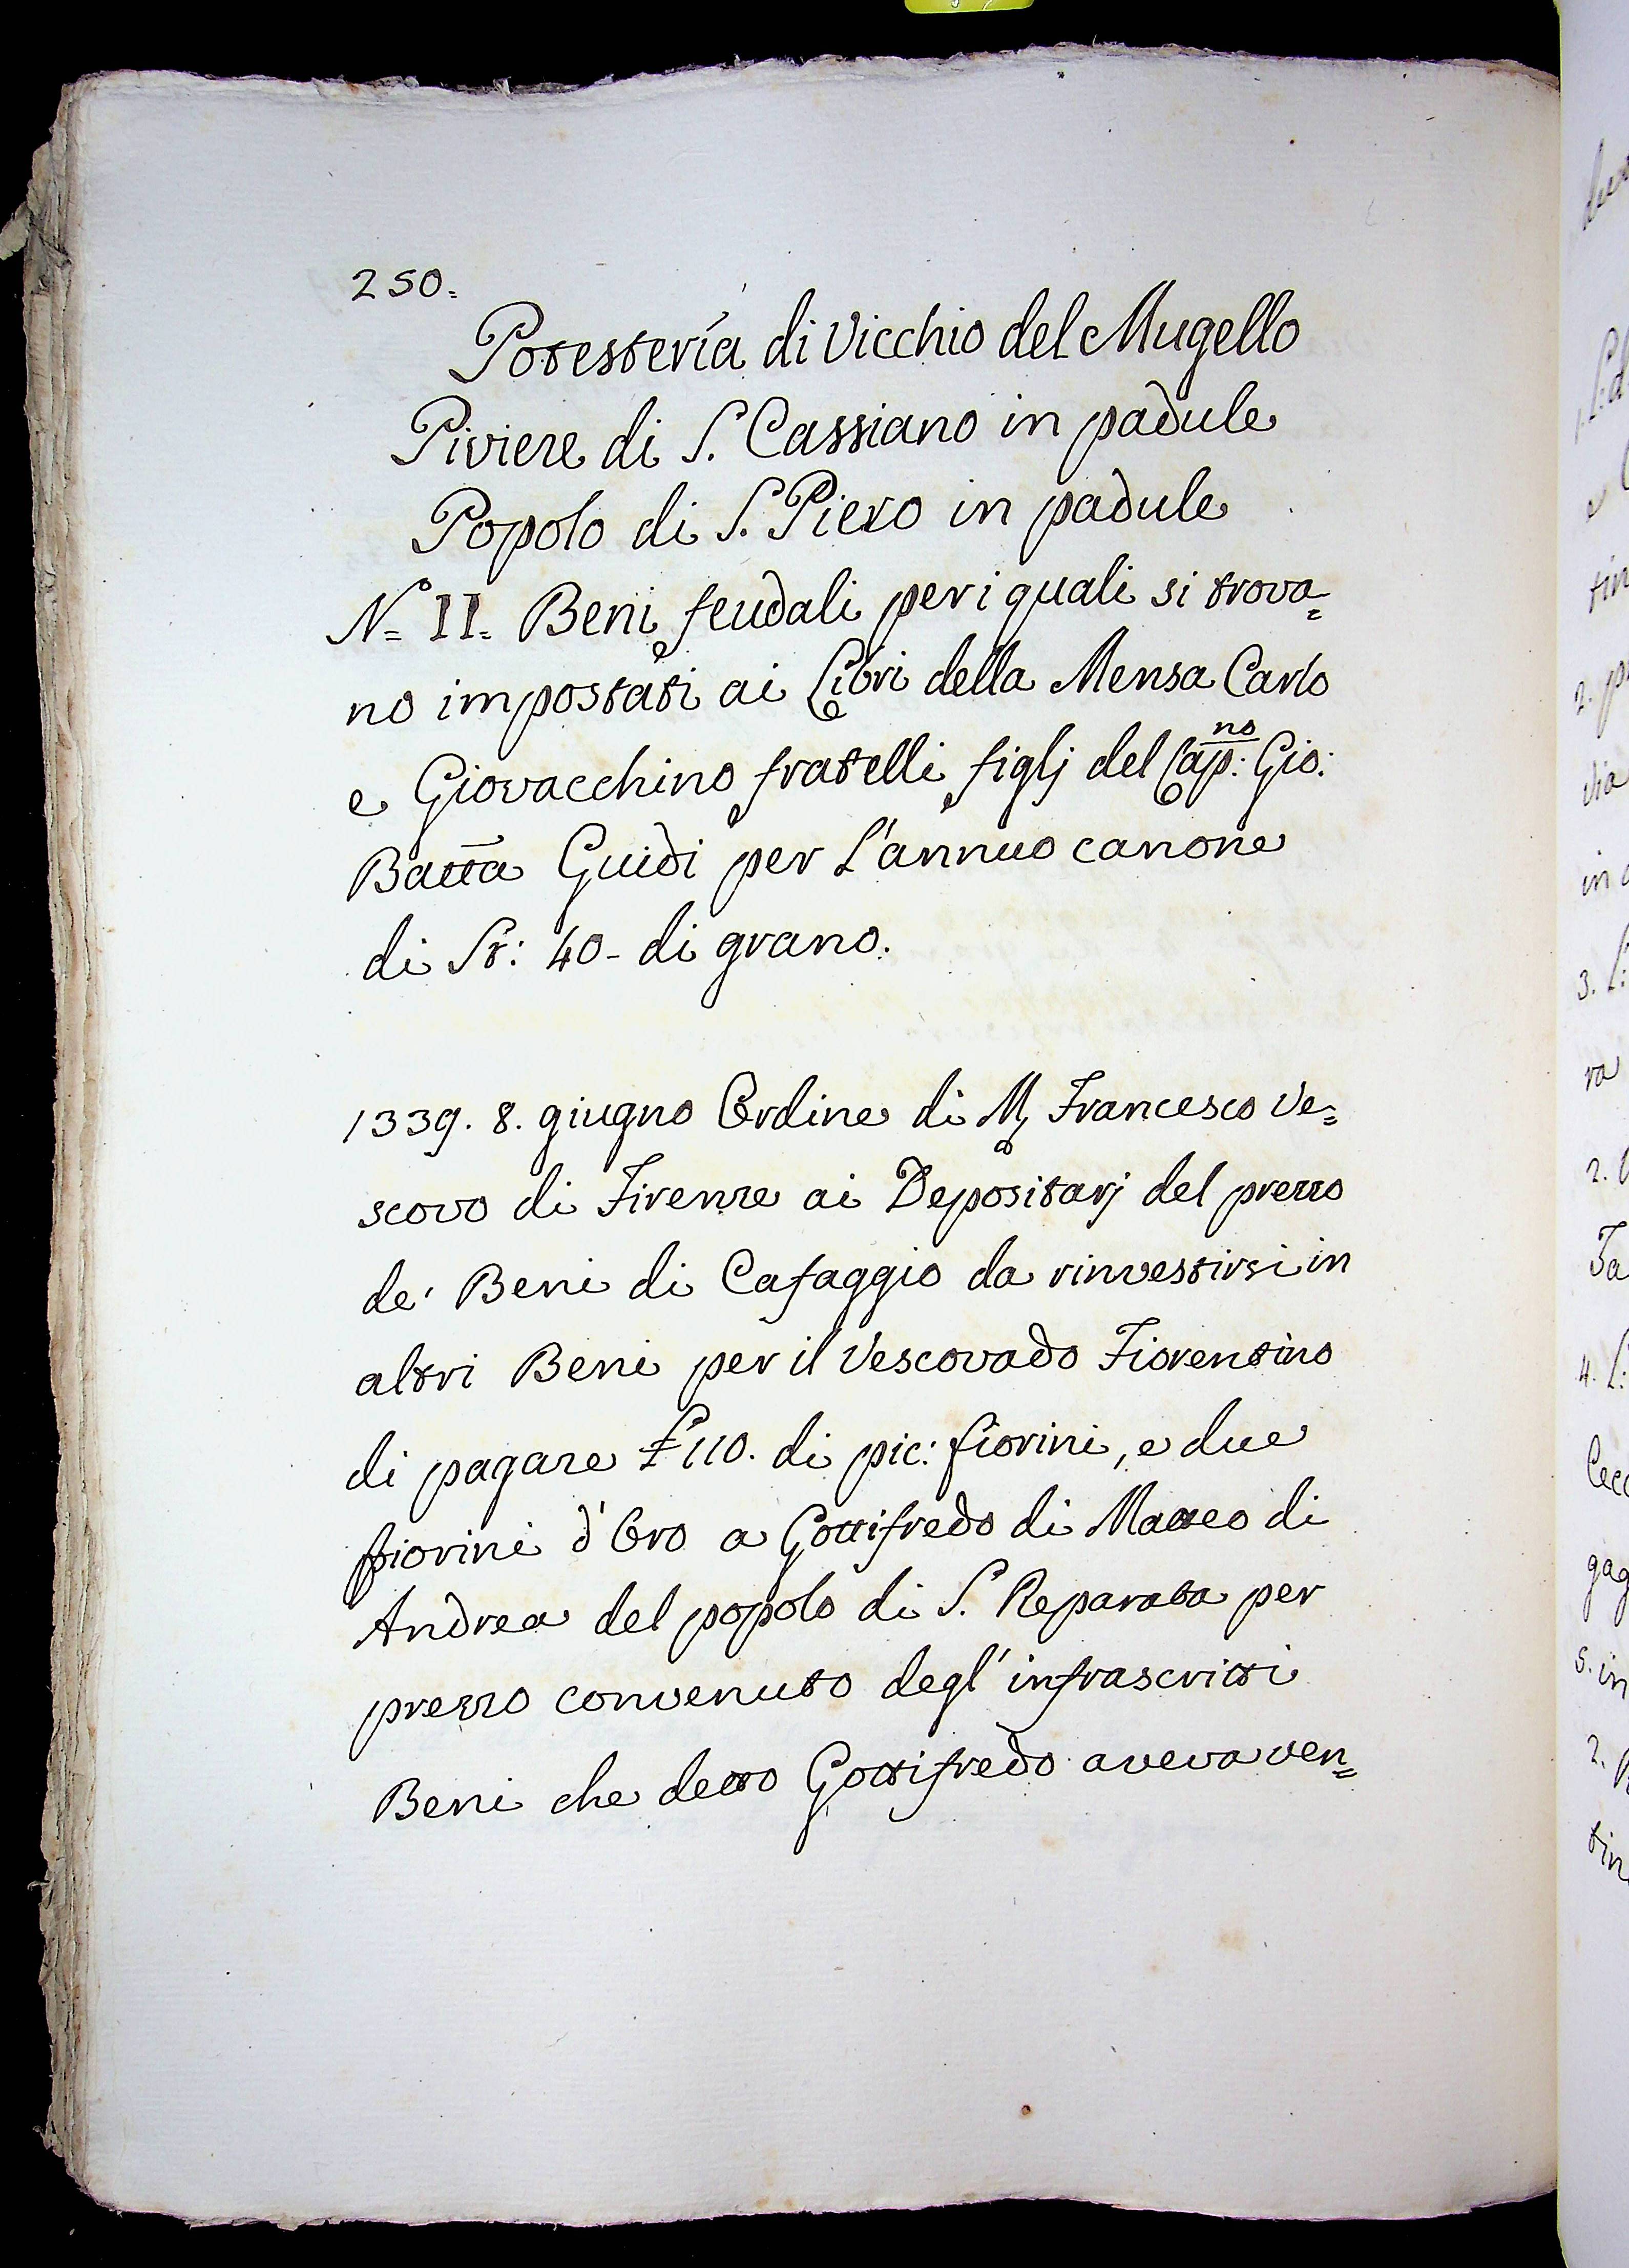 250.
Potesterìa di Vicchio del Mugello
Piviere di S. Cassiano in padule
Popolo di S. Piero in padule
N= II= Beni feudali per i quali si trova=
no impostati ai Libri della Mensa Carlo
e Giovacchino fratelli figlj del Cap:no Gio:
Batta Guidi per l'annuo canone
di St: 40- di grano.
1339. 8. giugno Ordine di M, Francesco Ve=
scovo di Firenze ai Depositarj del prezzo
de' Beni di Cafaggio da rinvestirsi in
altri Beni per il Vescovado Fiorentino
di pagare £ 110. di pic: fiorini, e due
fiorini d'Oro a Gottifredo di Matteo di
Andrea del popolo di S. Reparata per
prezzo convenuto degl'infrascritti
Beni che detto Gottifredo aveva ven=